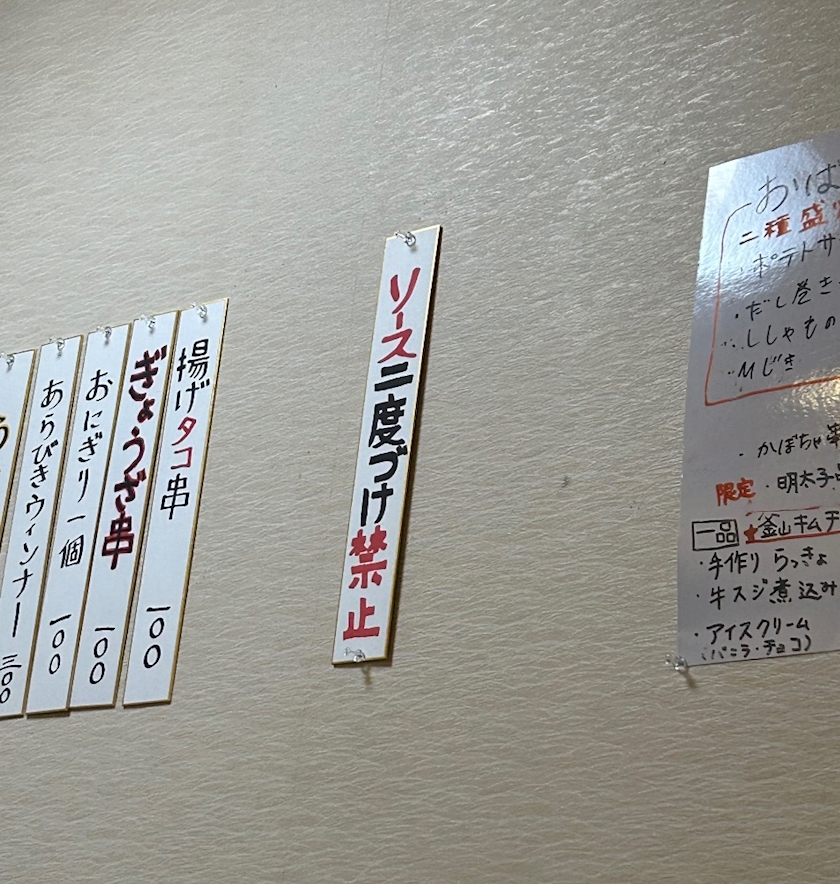 揚げタコ串 一〇〇
ぎょうざ串 一〇〇
おにぎり一個 一〇〇
あらびきウィンナー 三〇〇
ソース二度づけ禁止
おば
二種盛
・ポテトサ
・だし巻き
・ししゃもの
・ひじき
・かぼちゃ串
限定・明太子
一品 ★釜山キムチ
・手作り らっきょ
・牛スジ煮込み
・アイスクリーム
(バニラ・チョコ)